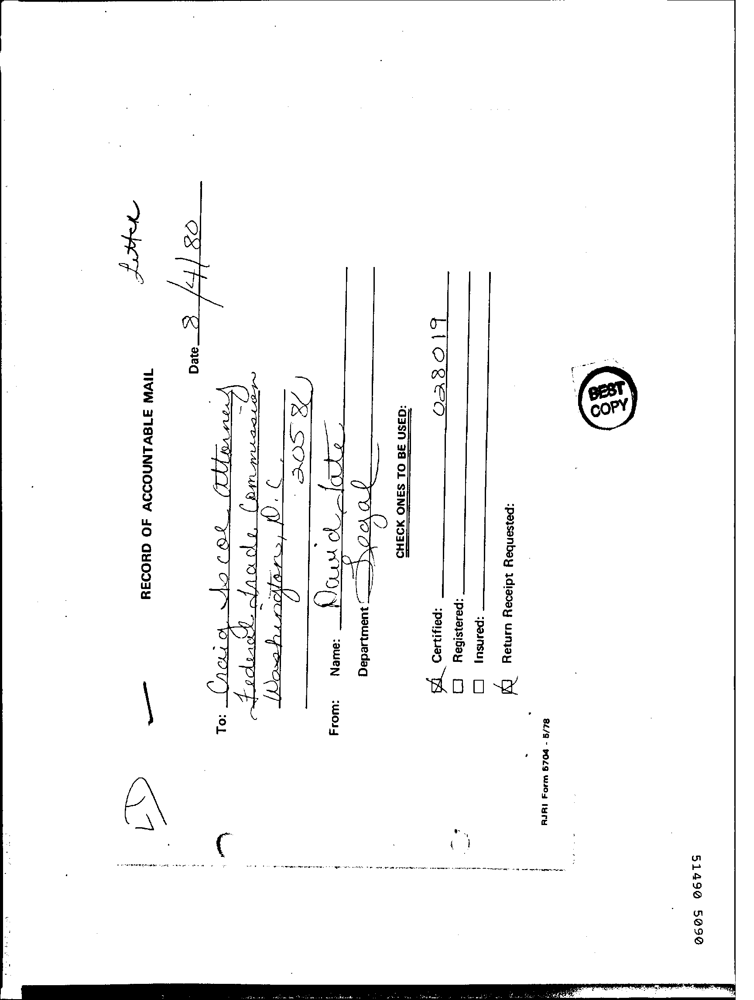 Letter
RECORD OF ACCOUNTABLE MAIL
Date 8/4/80
To: Craig Jocol Attorney
Federal Trade Commission
Washington, D.C.
2058
From: Name: David Tate
Department Legal
CHECK ONES TO BE USED:
Certified: 028019
Registered:
Insured:
Return Receipt Requested:
RJRI Form 5704 - 5/78
BEST
COPY
51490 5090